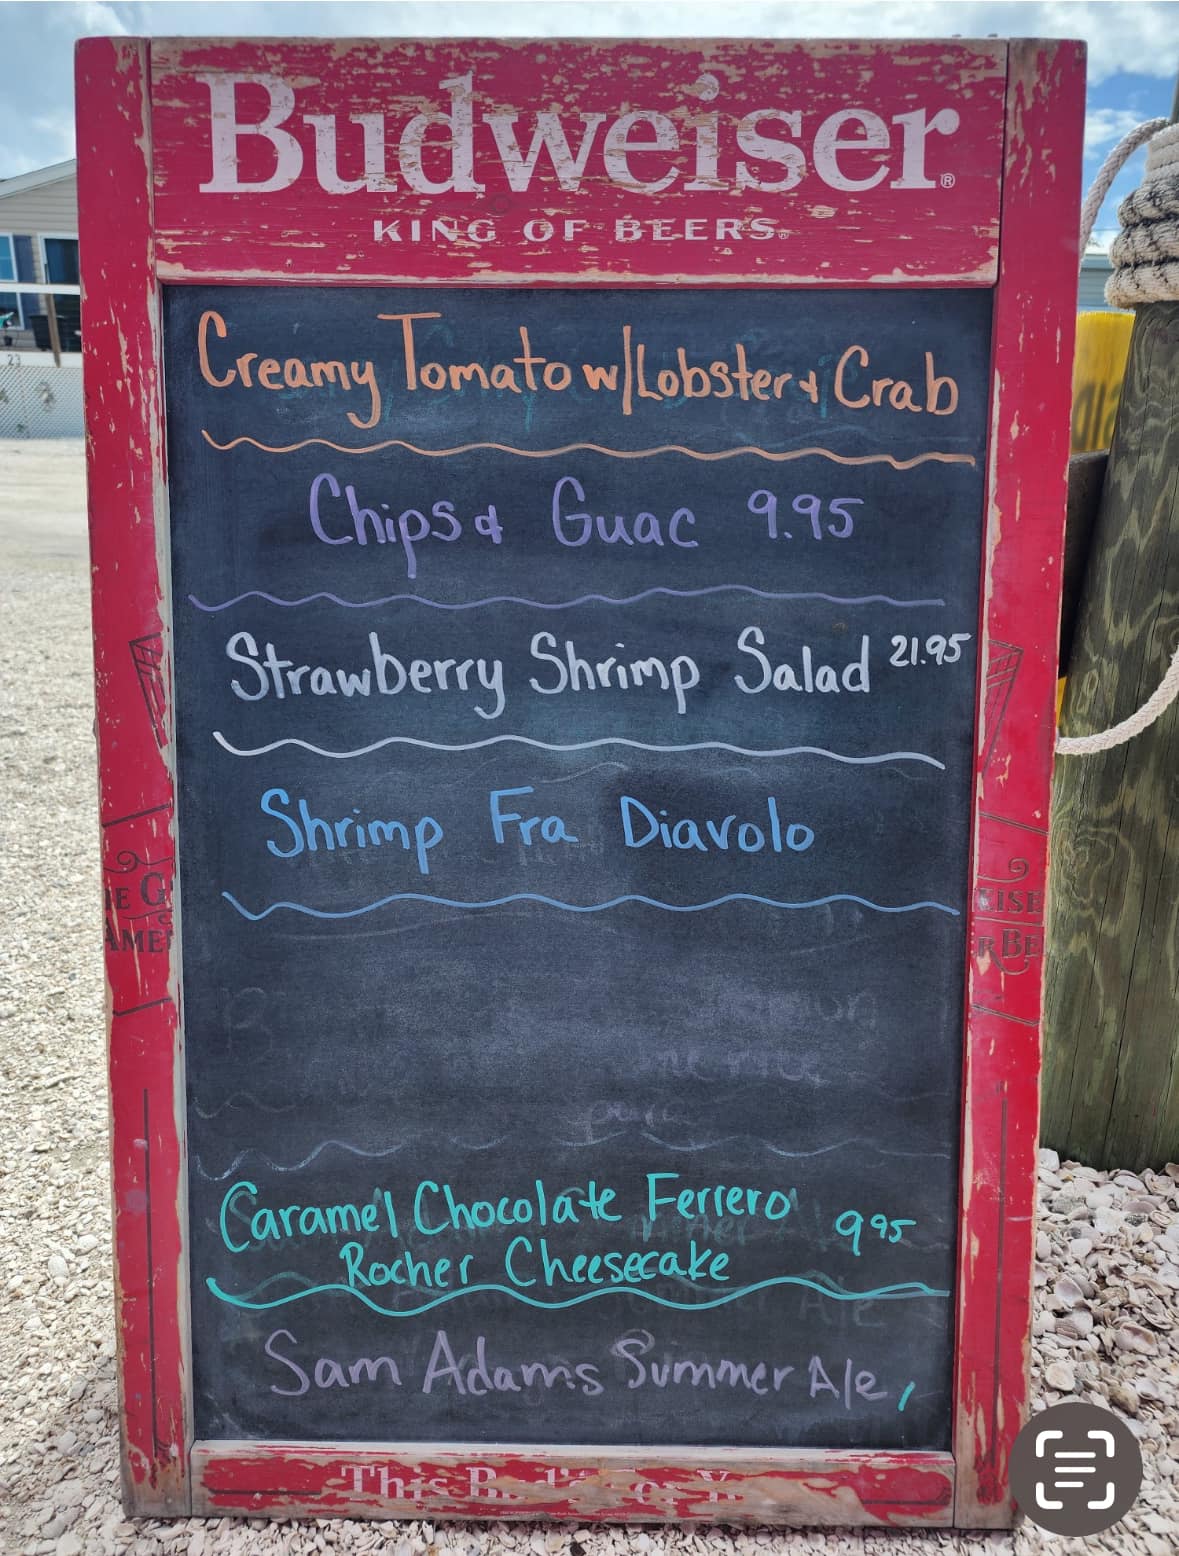 Budweiser®
KING OF BEERS®
Creamy Tomato w/Lobster & Crab
Chips & Guac 9.95
Strawberry Shrimp Salad 21.95
Shrimp Fra Diavolo
Caramel Chocolate Ferrero 995
Rocher Cheesecake
Sam Adams Summer Ale,
This
23